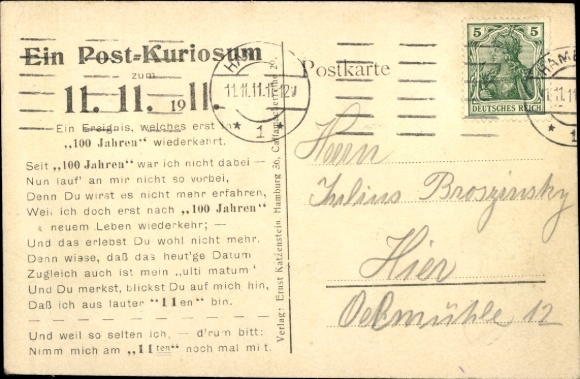 Ein Post-Kuriosum
zum
11. 11. 1911.
Ein Ereignis, welches erst in
„100 Jahren" wiederkehrt.
Seit „100 Jahren" war ich nicht dabei —
Nun lauf' an mir nicht so vorbei,
Denn Du wirst es nicht mehr erfahren,
Weil ich doch erst nach „100 Jahren"
neuem Leben wiederkehr; —
Und das erlebst Du wohl nicht mehr.
Denn wisse, daß das heut'ge Datum
Zugleich auch ist mein „ulti matum"
Und Du merkst, blickst Du auf mich hin,
Daß ich aus lauter "11en" bin.
Und weil so selten ich, — d'rum bitt:
Nimm mich am „11ten" noch mal mit.
Verlag: Ernst Katzenstein Hamburg 36,
Postkarte
5
DEUTSCHES REICH
HAMB
11.11.11.
* 1 *
Herrn
Julius Broszinsky
Hier
Oelmühle 12